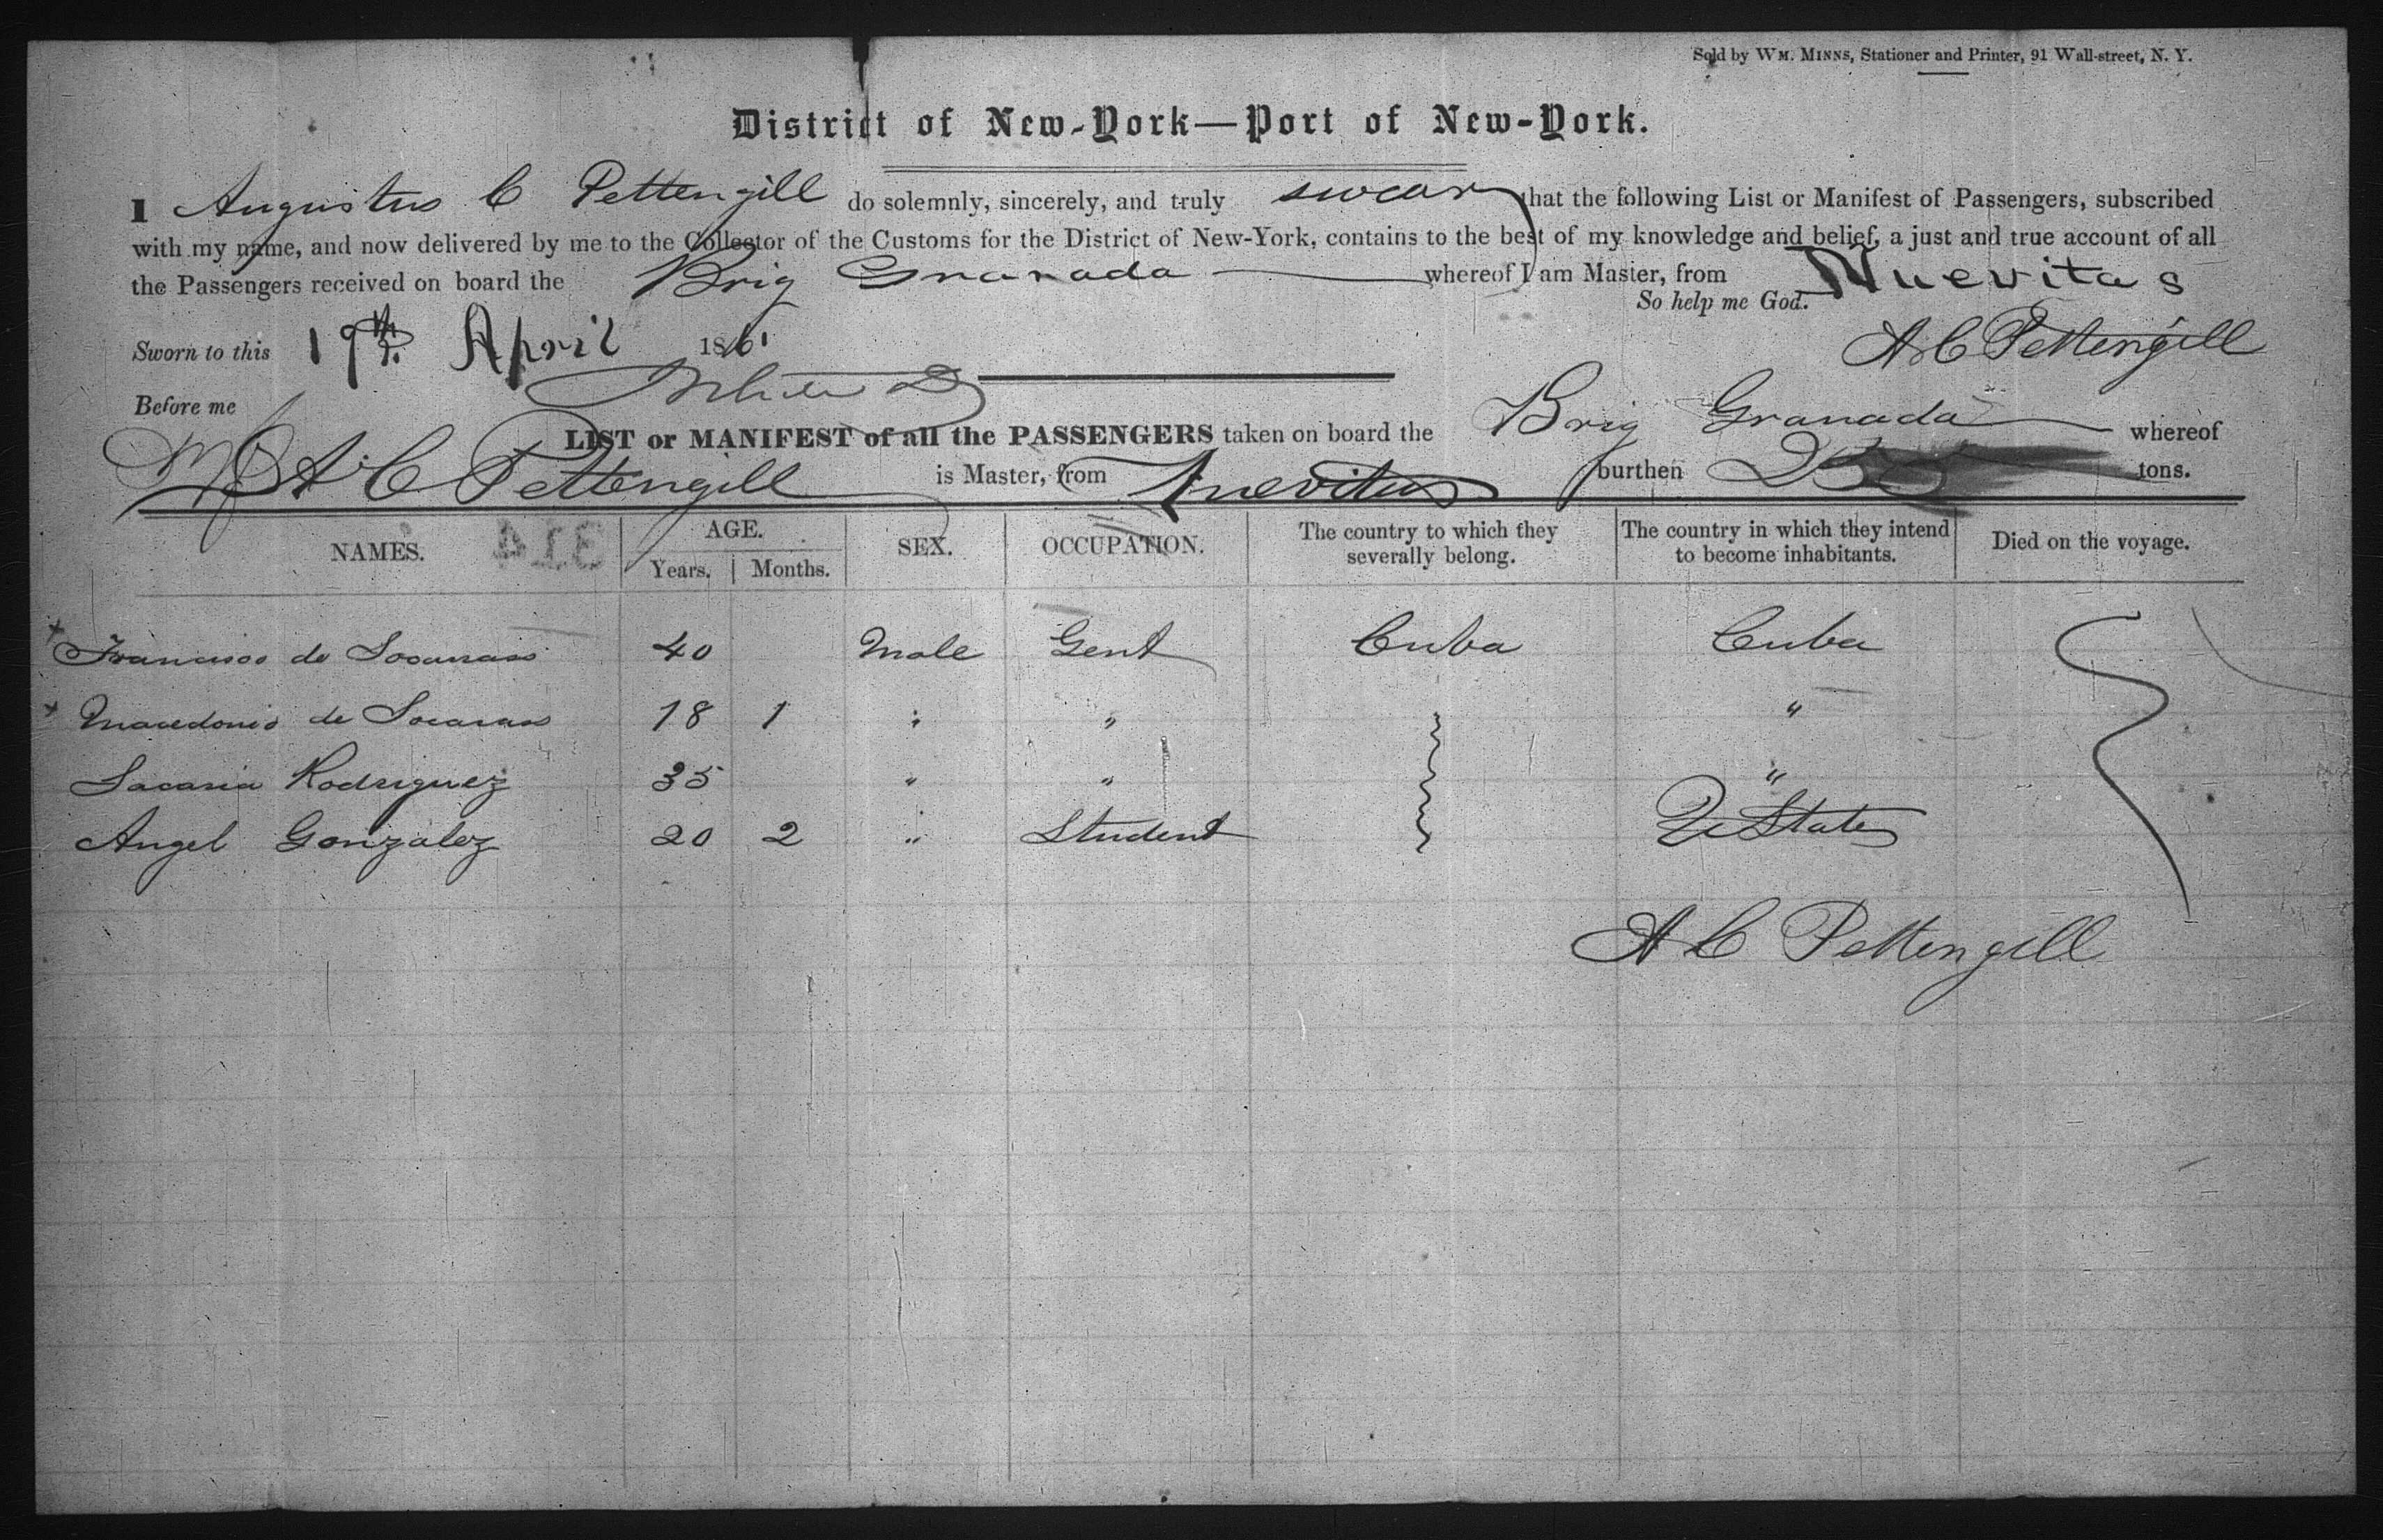 Sold by WM. MINNS, Stationer and Printer, 91 Wall-street, N. Y.
District of New-York—Port of New-York.
I Augustus C Pettengill do solemnly, sincerely, and truly swear that the following List or Manifest of Passengers, subscribed
with my name, and now delivered by me to the Collector of the Customs for the District of New-York, contains to the best of my knowledge and belief, a just and true account of all
the Passengers received on board the Brig Granada whereof I am Master, from Nuevitas
So help me God.
Sworn to this 19th. April 1861
A C Pettengill
Before me
LIST or MANIFEST of all the PASSENGERS taken on board the Brig Granada whereof
A C Pettengill is Master, from Nuevitas burthen tons.
NAMES. 314 AGE. SEX. OCCUPATION. The country to which they severally belong. The country in which they intend to become inhabitants. Died on the voyage.
Years. Months.
Francisco de 40 Male Gent Cuba Cuba
Macedonio de 18 1 " " "
Sacaria Rodriguez 35 " " "
Angel Gonzalez 20 2 " Student U States
A C Pettengill